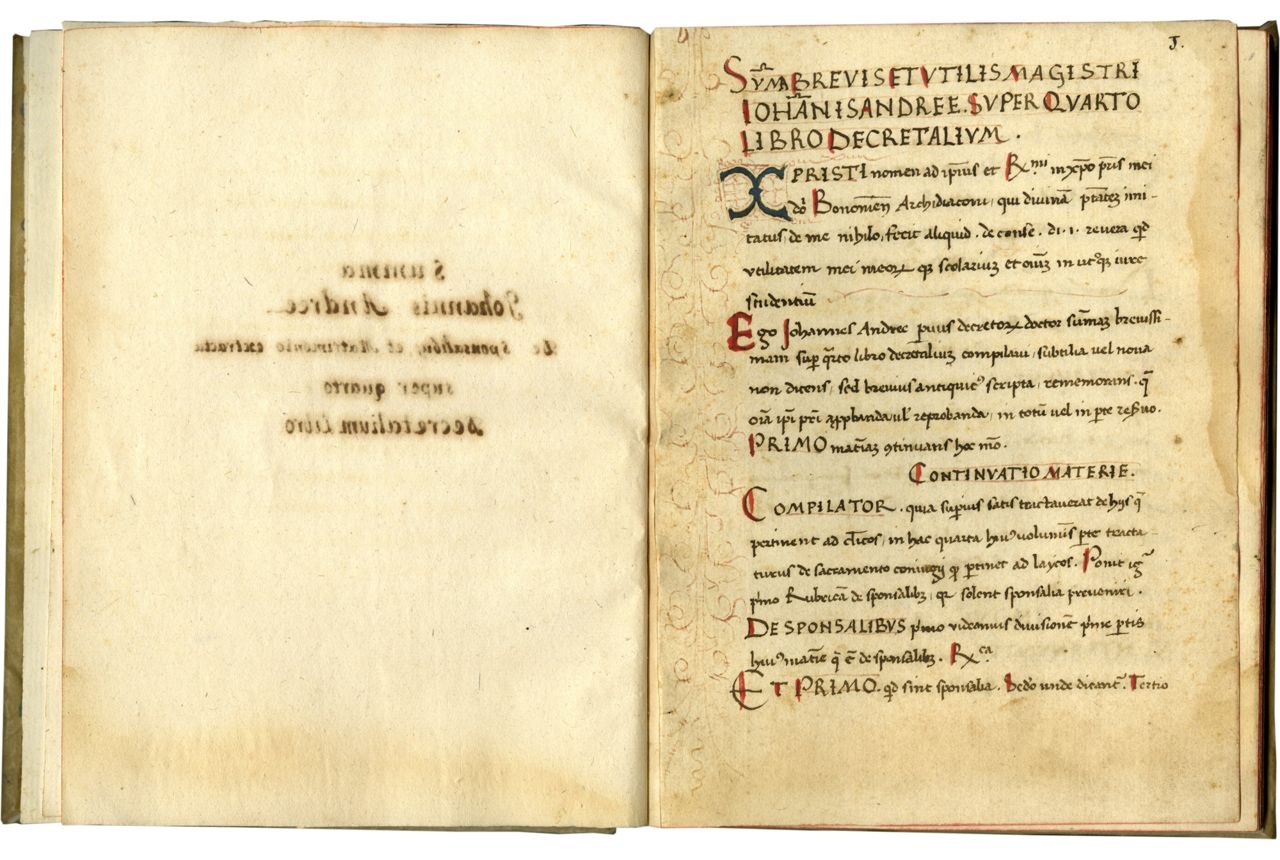 Summa
Johannis Andree
De Sponsalibus, et Matrimonio extracta
super quarto
Decretalium Libro
J.
SVM̄A BREVIS ET VTILIS MAGISTRI
IOHĀNIS ANDREE. SVPER QVARTO
LIBRO DECRETALIVM.
XPRISTI nomen ad ip̄ius et R.mi in xp̄o p̄ris mei
dō Bononieñ Archidiaconi, qui divinā ptātez imi-
tatus, de me nihilo, fecit aliquid. de conse. di. 1. revera qd
utilitatem mei meoꝝ qꝫ scolariuꝫ et oīuꝫ in utꝛoqꝫ iure
studentiū
Ego Johannes Andree p̄uus decretoꝝ doctor sūmaꝫ brevissi-
mam suꝑ qrto libro decretaliuꝫ compilavi, subtilia vel nova
non dicens, sed brevius antiquitꝰ scripta, rememorans. q̄
oīa ip̄i p̄ri aꝓbanda ul' reprobanda, in totū vel in ꝑte reẞuo.
PRIMO mat̄iaꝫ ꝯtinuans hoc mō.
CONTINVATIO MATERIE.
COMPILATOR. quia suꝑius satis tractaverat de hijs q̄
pertinent ad cl̄icos, in hac quarta huiꝰ voluminis ꝑte tracta-
turus de sacramento coniugij qꝛ ꝑtinet ad laycos. Ponit igr̄
p̄mo Rubricā de sponsalibꝫ, qꝛ solent sponsalia preveniri.
DE SPONSALIBVS p̄mo videamus divisionē p̄me ꝑtis
huiꝰ mat̄ie q̄ ē de sponsalibꝫ. R.ca
ET PRIMO. qd sint sponsalia. Sedo unde dicant̄. Tertio